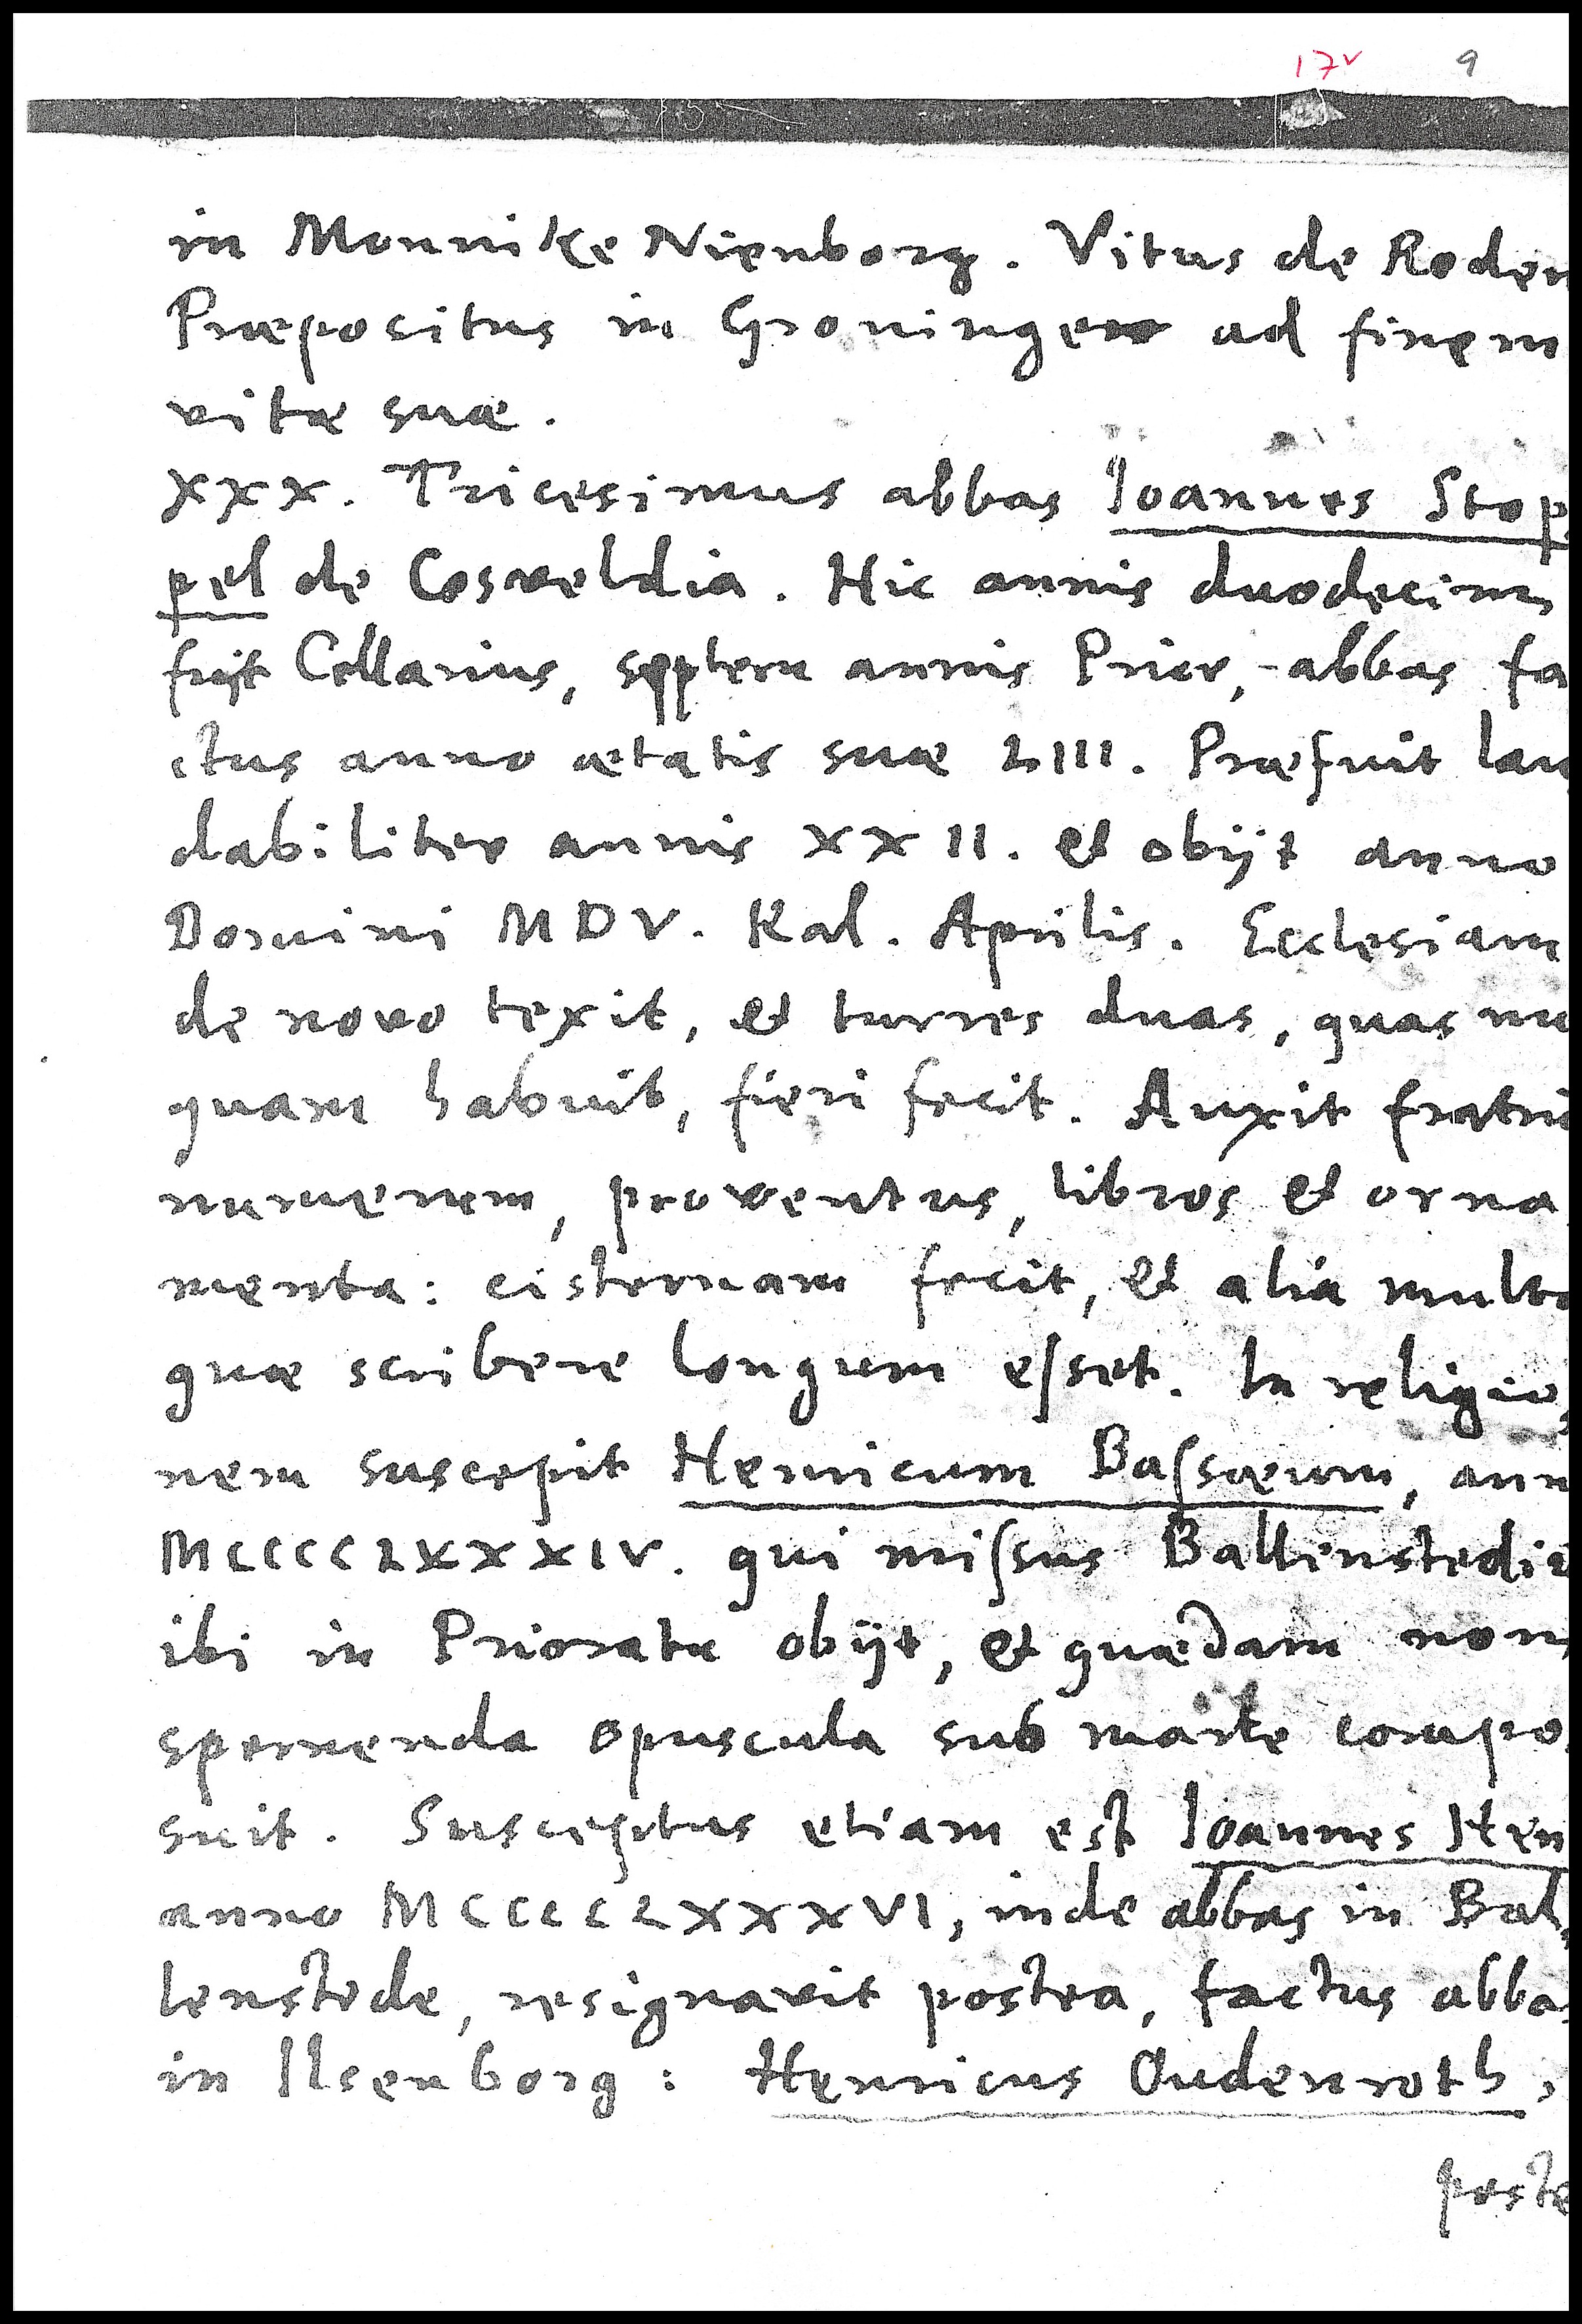 17v 9
in Monnike Nienborg. Vitus de Roden
Præpositus in Groningen ad finem
vitæ suæ.
XXX. Tricesimus abbas Ioannes Stop,
pel de Cosveldia. Hic annis duodecim
fuit Cellarius, septem annis Prior, abbas fa
ctus anno ætatis suæ LIII. Præfuit lau,
dabiliter annis XXII. et obijt anno
Domini MDV. Kal. Aprilis. Ecclesiam
de novo texit, et turres duas, quas nu
quam habuit, fieri fecit. Auxit fratru
numerum, proventus, libros et orna,
menta: cisternam fecit, et alia multa
quæ scribere longum esset. In religio,
nem suscepit Henricum Bassæum, ann
MCCCCLXXXIV. qui missus Ballenstedie
ibi in Prioratu obijt, et quædam non
spernenda opuscula sub morte compo,
suit. Susceptus etiam est Ioannes Hen
anno MCCCCLXXXVI, inde abbas in Bal,
lenstede, resignavit postea, factus abba
in Ilsenborg: Henricus Oudenroth,
poste